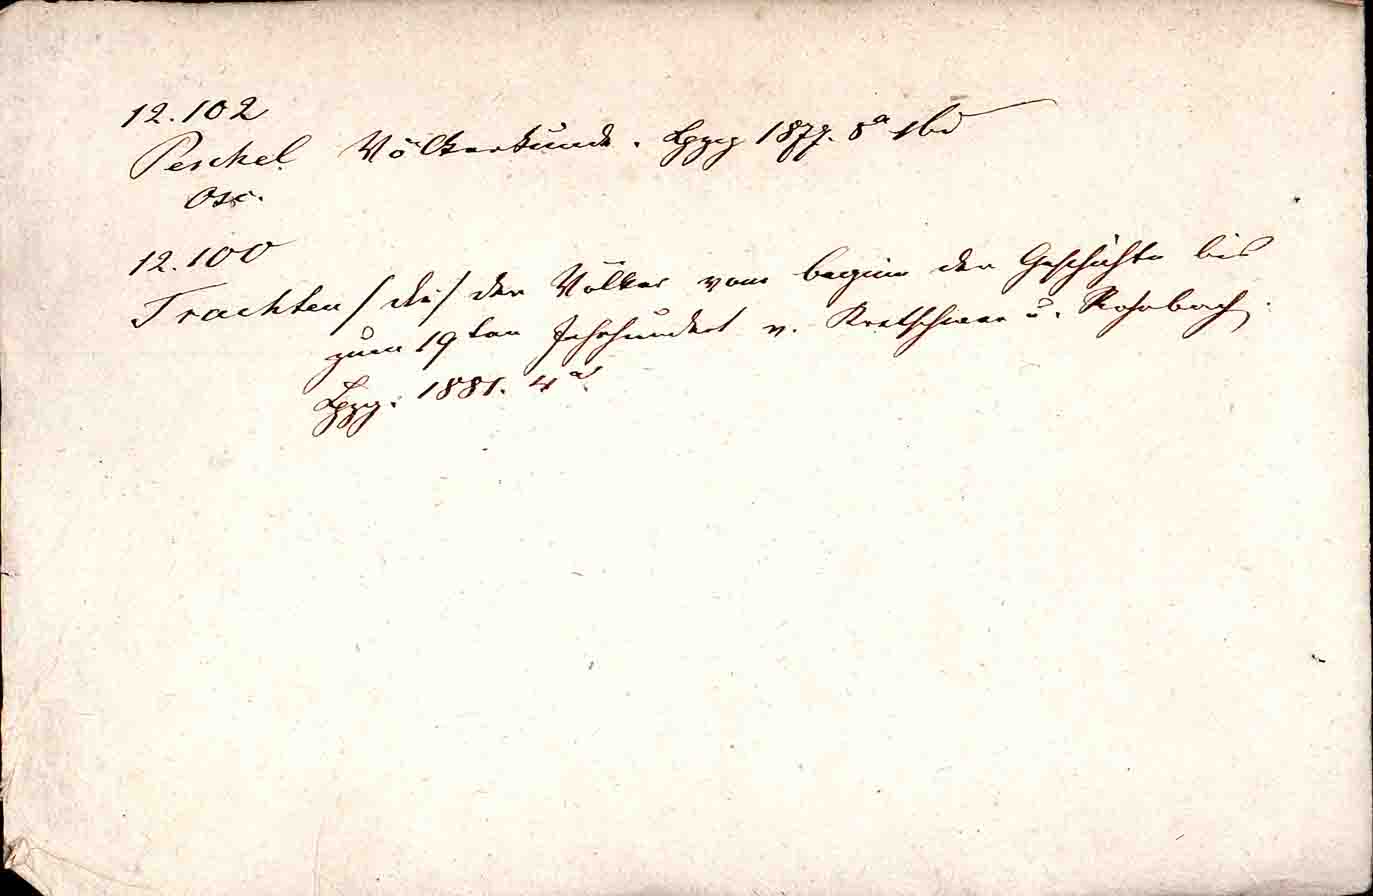 12.102
Peschel Völkerkunde. Lpzg 1877. 8° 1 bd
Osc.
12.100
Trachten / die / der Völker vom beginn der Geschichte bis
zum 19ten Jahrhundert v. Kretschmer u. Rohrbach.
Lpzg. 1881. 4°.